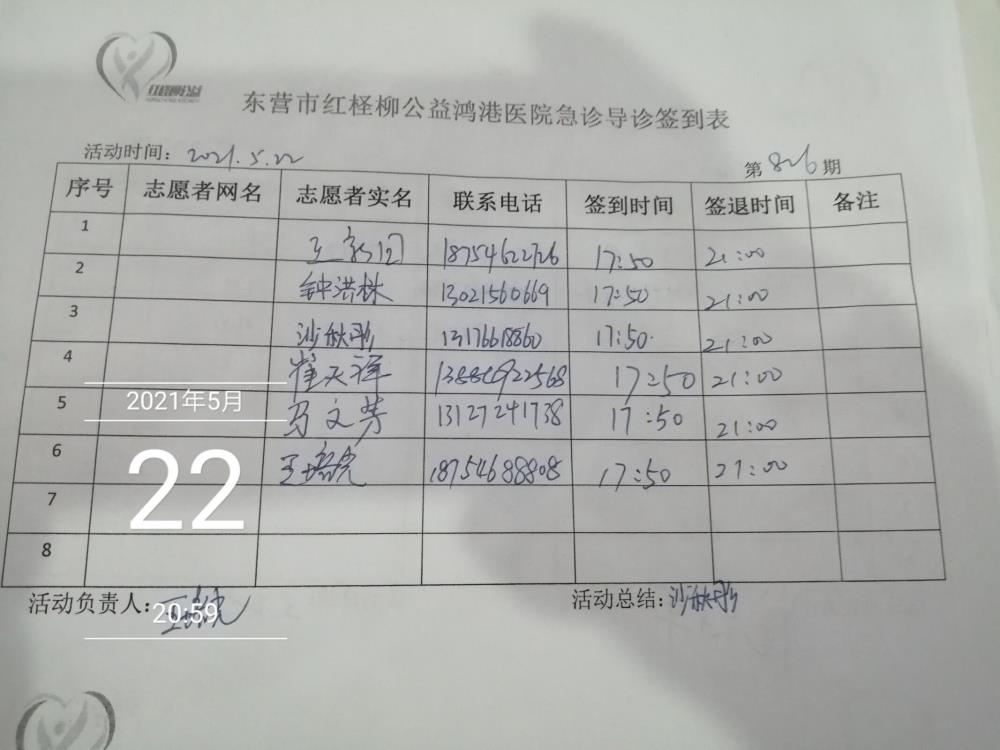 红柽柳公益
东营市红柽柳公益鸿港医院急诊导诊签到表
活动时间：2021.5.22
第826期
序号 志愿者网名 志愿者实名 联系电话 签到时间 签退时间 备注
1 18754622726 17:50 21:00
2 钟洪林 13021560669 17:50 21:00
3 沙秋彤 13176618860 17:50 21:00
4 崔天祥 17:50 21:00
5 马文芳 13127241738 17:50 21:00
6 18754688808 17:50 21:00
7
8
2021年5月
22
20:59
活动负责人：
活动总结：沙秋彤